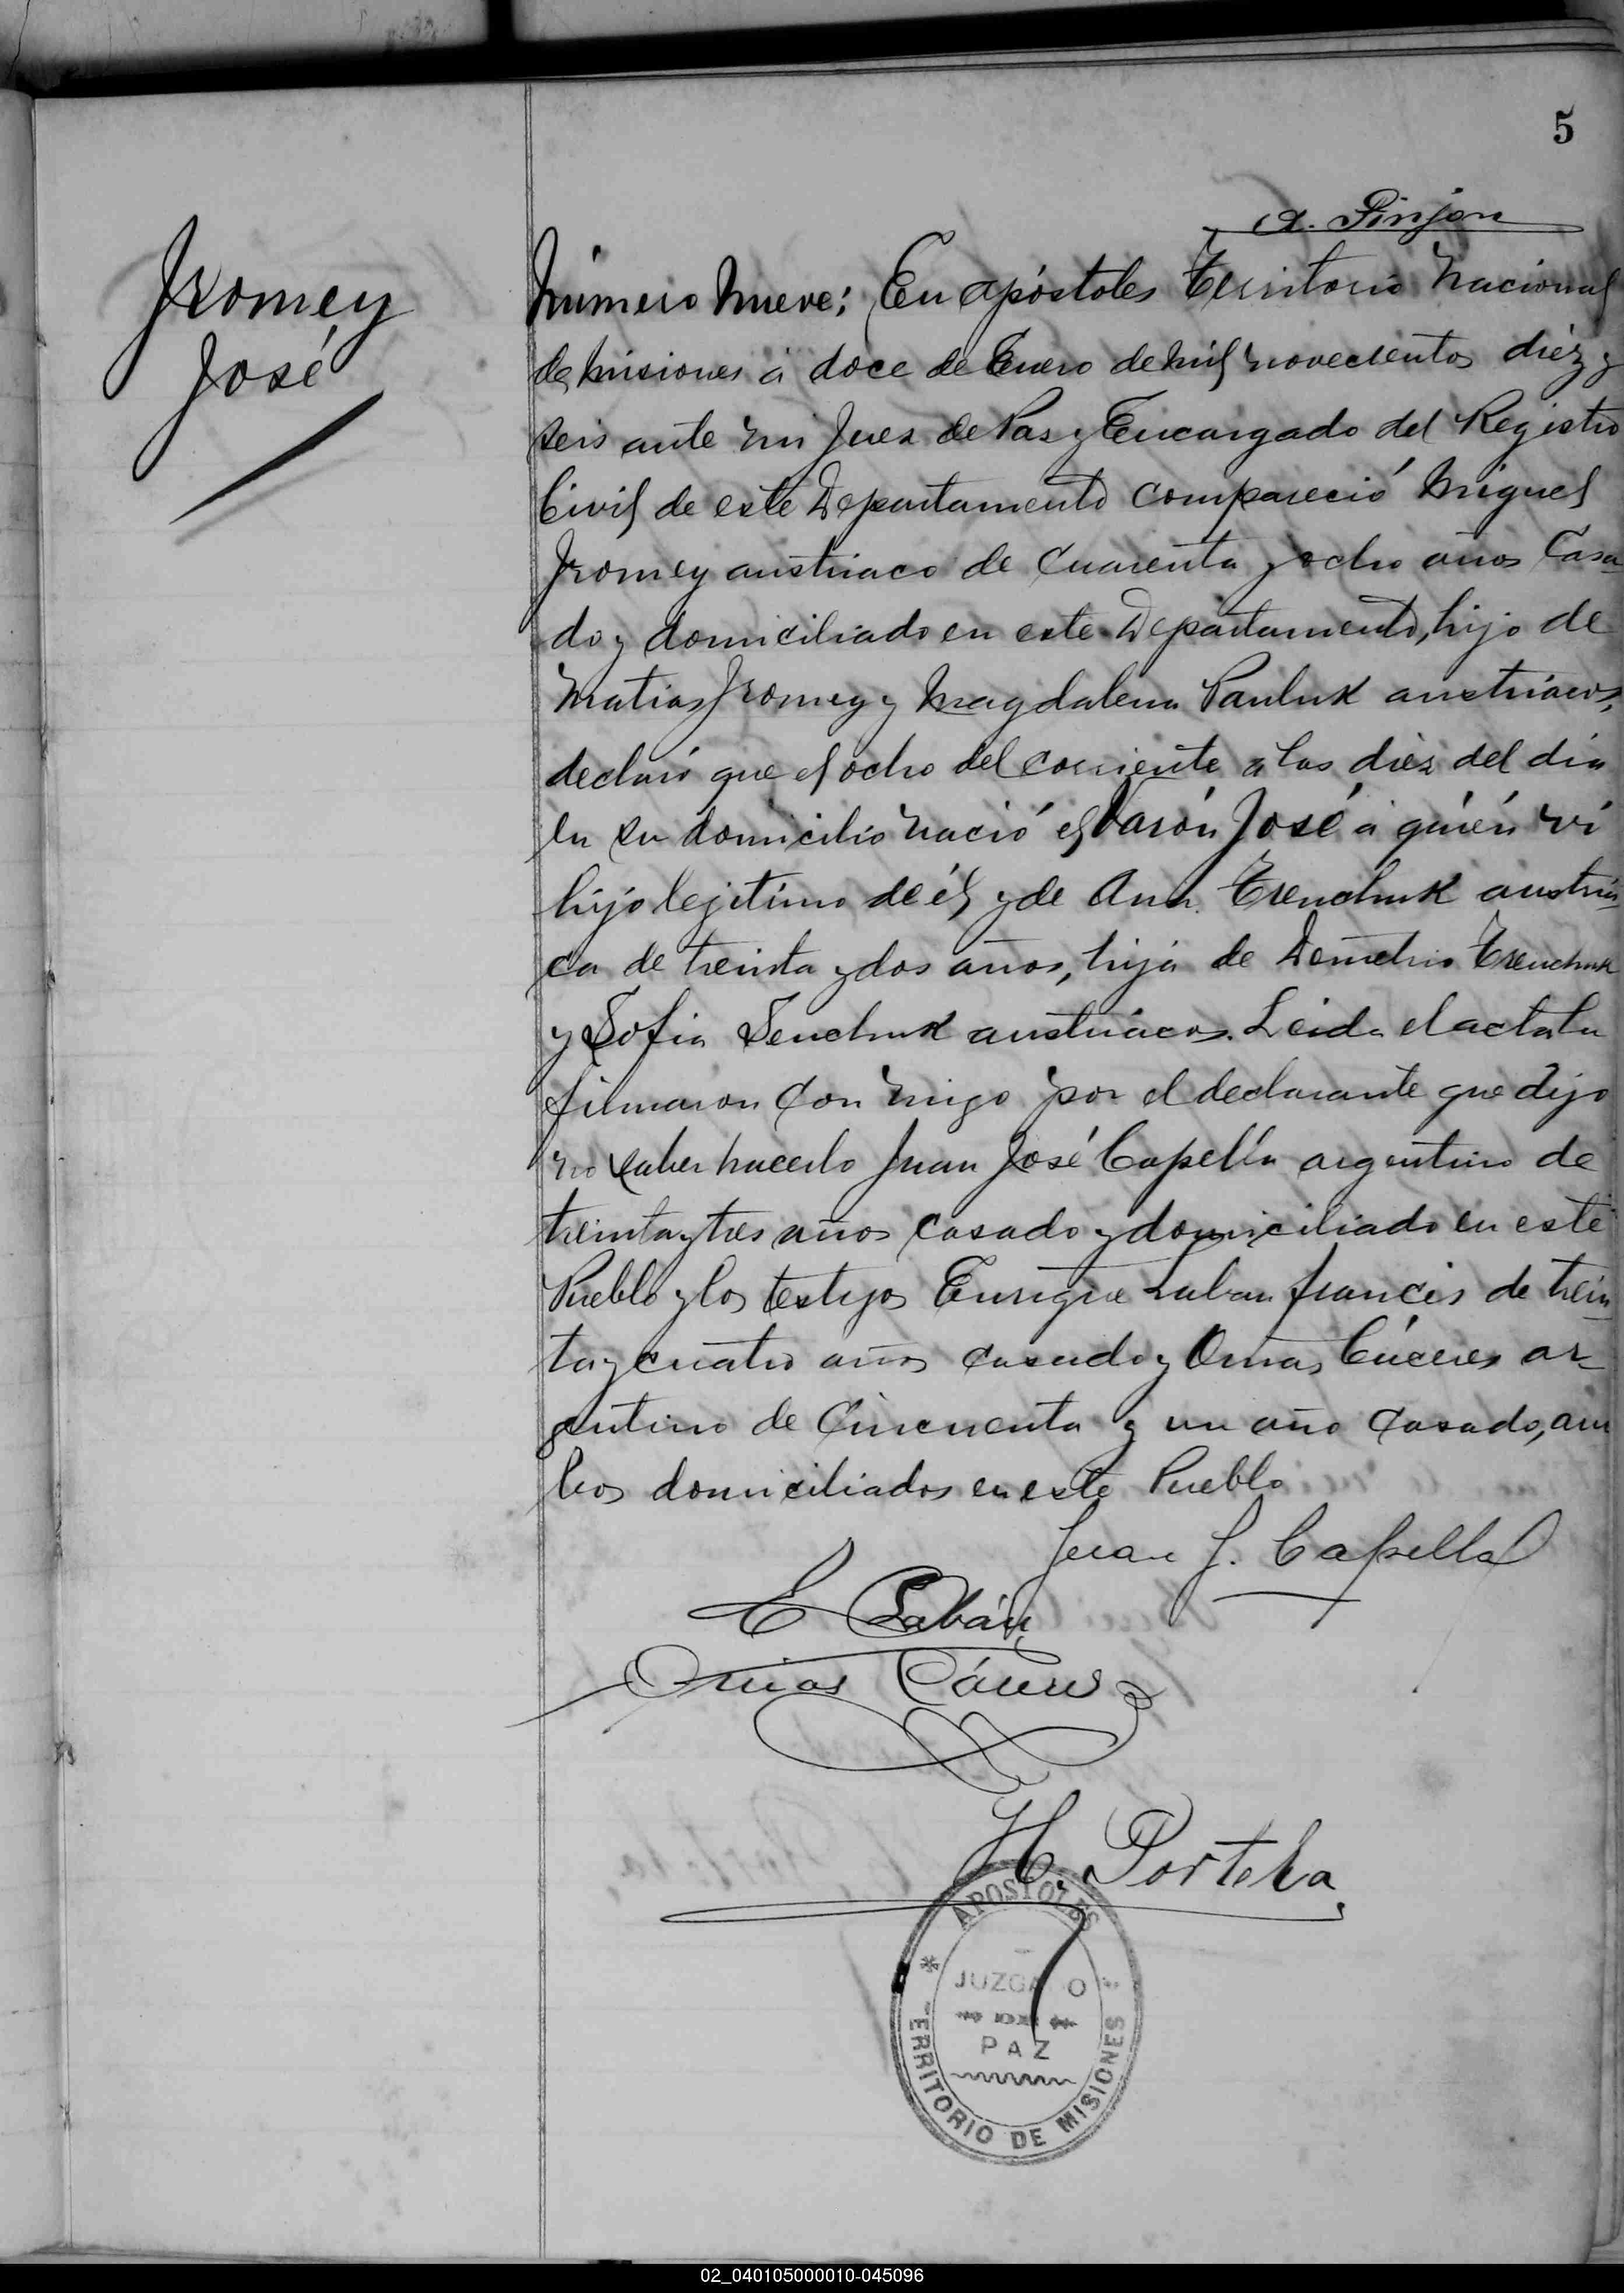 5
A. Pinjon
Jromey
José
Número Nueve: En apóstoles Territorio Nacional
de Misiones á doce de Enero de mil novecientos diéz y
seis ante mi Juez de Pas y Encargado del Registro
Civil de este Departamento compareció Miguel
Jromey austriaco de cuarenta y ocho años Casa-
do y domiciliado en este Departamento, hijo de
Matias Jromey y Magdalena Pauluk austriacos,
declaró que el ocho del corriente a las diez del dia
en su domicilio nació el Varón José á quién vi
hijo legitimo de él y de Ana Trenchuk austria-
ca de treinta y dos años, hija de Demetrio Trenchuk
y Sofia Senchuk austriacos. Leida el acta la
firmaron con migo por el declarante que dijo
no saber hacerlo Juan José Capella argentino de
treinta y tres años casado y domiciliado en este
Pueblo y los testigos Enrique Laban francés de trein-
ta y cuatro años casado y Onias Cáceres ar-
gentino de Cincuenta y un año casado, am
bos domiciliados en este Pueblo
Juan J. Capella
E Labán
Onias Cáceres
H. Portela
APOSTOLES
JUZGA O
DE
PAZ
ERRITORIO DE MISIONES
02_040105000010-045096